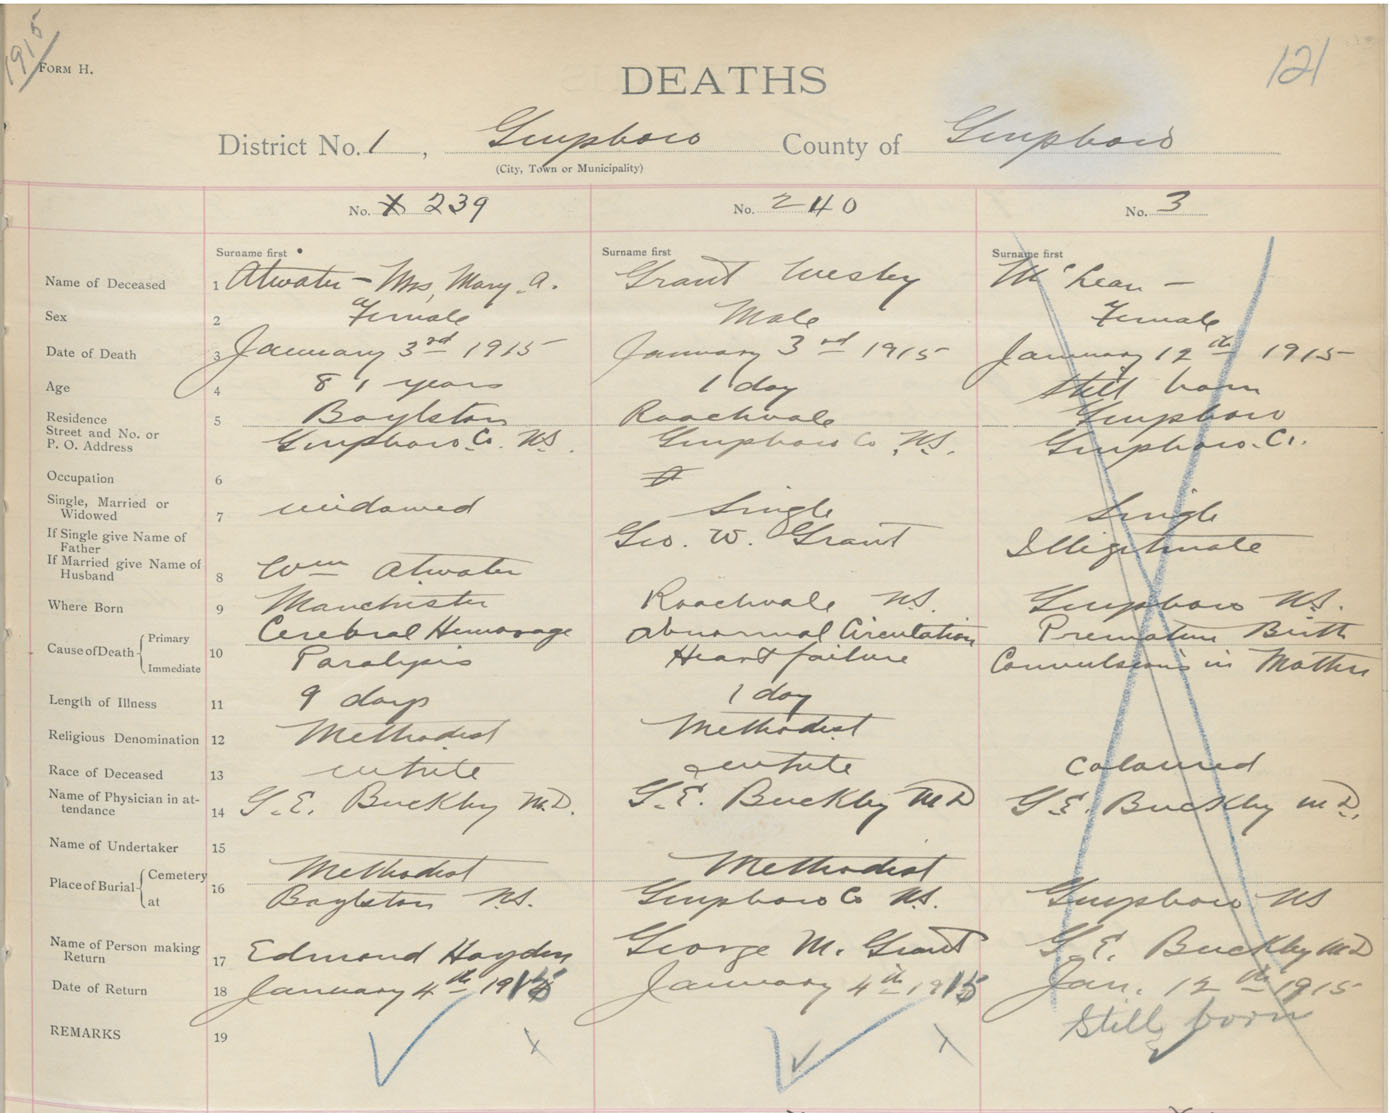 1915
FORM H.
121
DEATHS
District No. 1, Guysboro County of Guysboro
(City, Town or Municipality)
No. 239 No. 240 No. 3
Surname first Surname first Surname first
Name of Deceased 1 Atwater - Mrs, Mary. A. Grant Wesley McLean -
Sex 2 Female Male Female
Date of Death 3 January 3rd 1915 January 3rd 1915 January 12th 1915
Age 4 81 years 1 day Still born
Residence 5 Boylston Roachvale Guysboro
Street and No. or
P. O. Address Guysboro Co. N.S. Guysboro Co N.S. Guysboro. Co.
Occupation 6
Single, Married or
Widowed 7 widowed Single Single
If Single give Name of
Father Geo. W. Grant Illigitimate
If Married give Name of
Husband 8 Wm Atwater
Where Born 9 Manchester Roachvale N.S. Guysboro N.S.
Cause of Death 10 Primary Cerebral Hemorage Abnormal Circulation Premature Birth
Immediate Paralysis Heart failure Convulsions in Mother
Length of Illness 11 9 days 1 day
Religious Denomination 12 Methodist Methodist
Race of Deceased 13 white white Coloured
Name of Physician in at-
tendance 14 G. E. Buckley M.D. G. E. Buckley M.D. G. E. Buckley M.D.
Name of Undertaker 15
Place of Burial 16 Cemetery Methodist Methodist
at Boylston N.S. Guysboro Co N.S. Guysboro N.S.
Name of Person making
Return 17 Edmond Hayden George M. Grant G. E. Buckley M.D.
Date of Return 18 January 4th 1915 January 4th 1915 Jan. 12th 1915
REMARKS 19 Still born